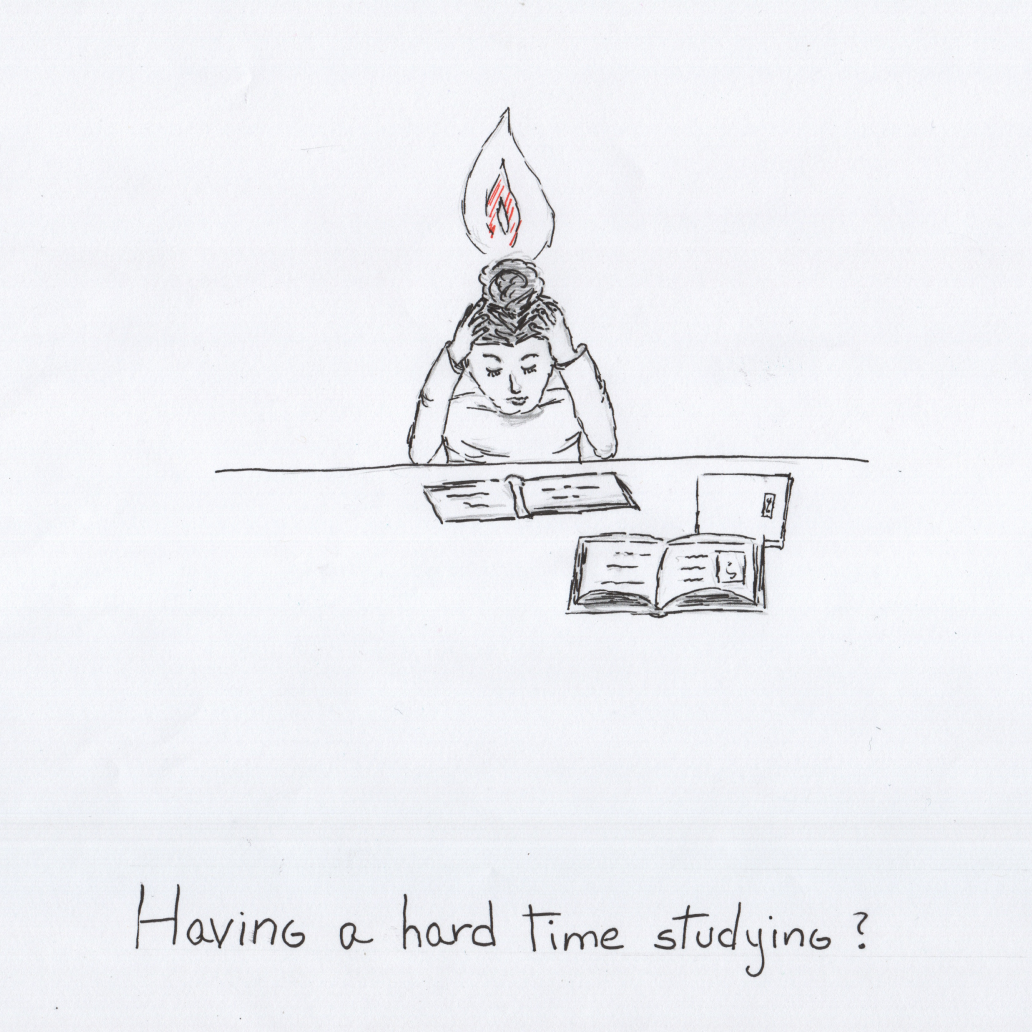 Having a hard time studying?